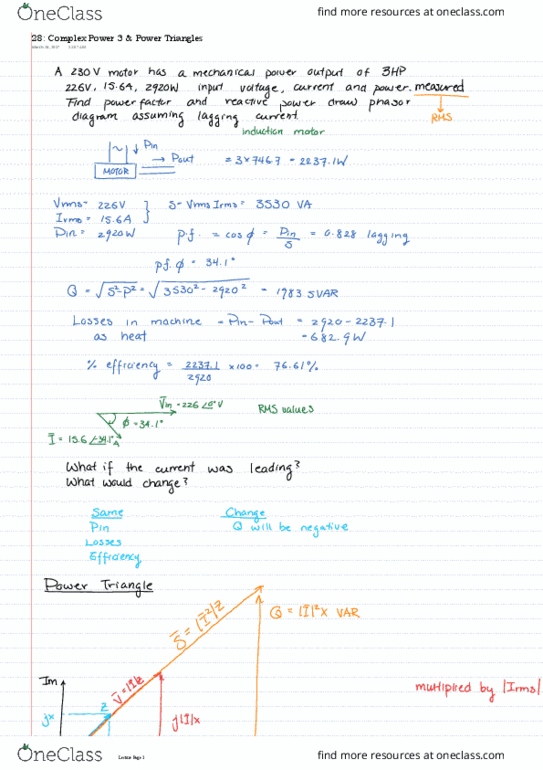 OneClass
find more resources at oneclass.com
28: Complex Power 3 & Power Triangles
A 230V motor has a mechanical power output of 3HP
226V, 15.6A, 2920W input voltage, current and power measured
Find power factor and reactive power draw phasor
diagram assuming lagging current
RMS
induction motor
Pin
Pout = 3x746.7 = 2237.1W
MOTOR
Vrms = 226V
Irms = 15.6A
Pin = 2920W
S = Vrms Irms = 3530 VA
p.f. = cos ϕ = Pin/S = 0.828 lagging
p.f. ϕ = 34.1°
Q = √S²-P² = √3530² - 2920² = 1983.5VAR
Losses in machine = Pin - Pout = 2920 - 2237.1
as heat = 682.9W
% efficiency = 2237.1/2920 x100 = 76.61%
V̄in = 226∠0° V
ϕ = 34.1°
RMS values
Ī = 15.6∠34.1° A
What if the current was leading?
What would change?
Same
Change
Pin
Q will be negative
Losses
Efficiency
Power Triangle
Q = |Ī|²X VAR
S̄ = |Ī²|Z
V̄ = |Ī|Z
Im
multipired by |Irms|
Z
jX
j|Ī|X
OneClass
find more resources at oneclass.com